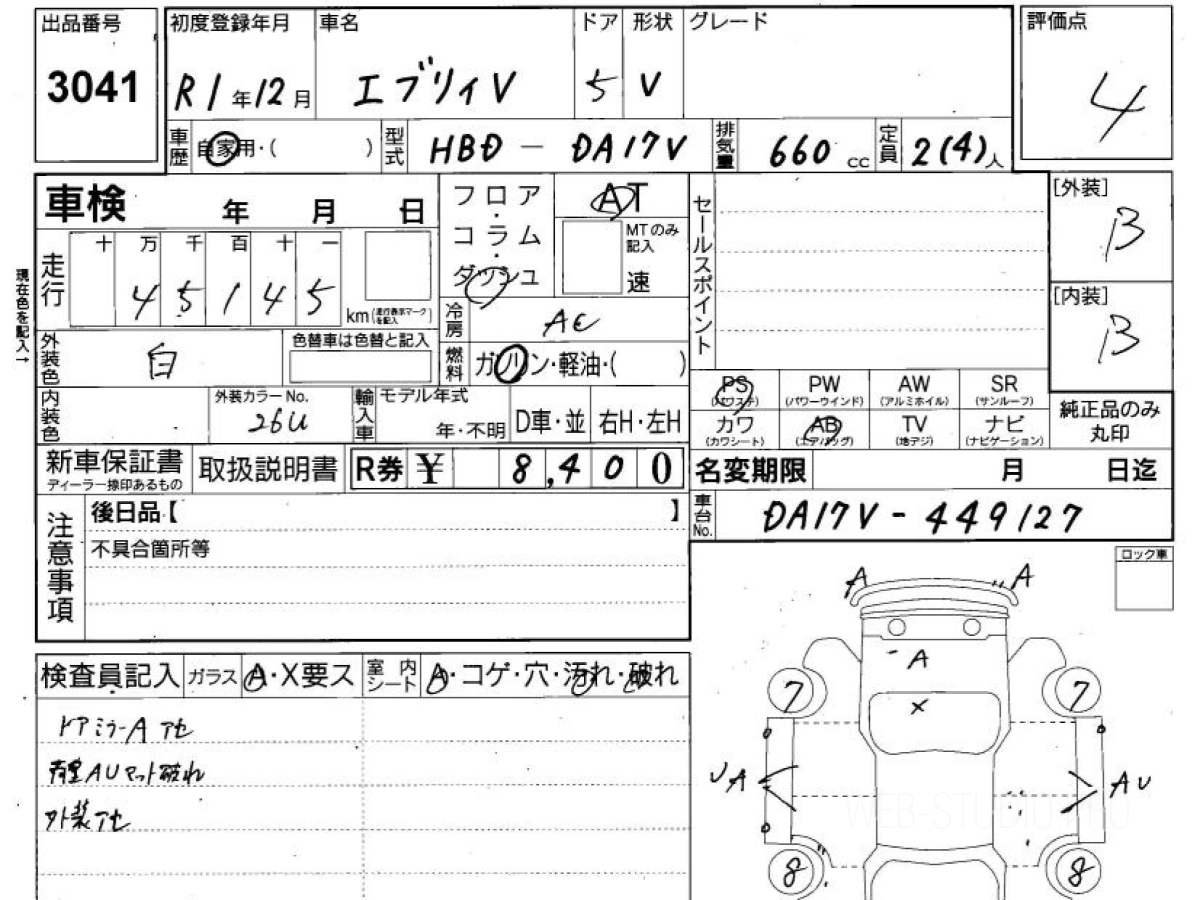 出品番号 初度登録年月 車名 ドア 形状 グレード 評価点
3041 R1年12月 エブリィV 5 V 4
車歴 自家用・( ) 型式 HBD-DA17V 排気量 660cc 定員 2(4)人
車検 年 月 日
フロア・コラム・ダッシュ AT
MTのみ記入
速
セールスポイント
[外装]
B
[内装]
B
現在色を記入→
走行 十 万 千 百 十 一
4 5 1 4 5 km (走行表示マークを記入)
冷房 AC
外装色 白 色替車は色替と記入
燃料 ガソリン・軽油・( )
PS (パワステ) PW (パワーウインド) AW (アルミホイル) SR (サンルーフ)
カワ (カワシート) AB (エアバッグ) TV (地デジ) ナビ (ナビゲーション)
純正品のみ丸印
内装色 外装カラーNo. 26U 輸入車 モデル年式 年・不明 D車・並 右H・左H
新車保証書 ディーラー捺印あるもの 取扱説明書 R券 ¥ 8,400
名変期限 月 日迄
車台No. DA17V-449127
注意事項 後日品【 】
不具合箇所等
ロック車
検査員記入 ガラス A・X要ス 室内シート A・コゲ・穴・汚れ・破れ
ドアミラーA アセ
AUマット破れ
外装アセ
A A
A
7 X 7
UA AU
8 8
WEB-STUDIO.PRO